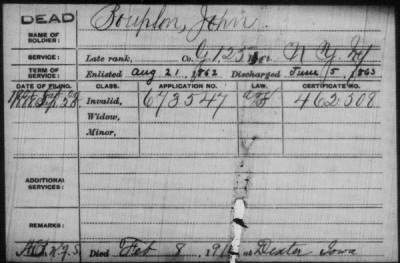 DEAD
NAME OF SOLDIER: Souplon, John.
SERVICE: Late rank, Co. G, 125 N.Y. Inf
TERM OF SERVICE: Enlisted Aug 21, 1862 Discharged June 5, 1863
DATE OF FILING. CLASS. APPLICATION NO. LAW. CERTIFICATE NO.
Invalid, 673547 462508
Widow,
Minor,
ADDITIONAL SERVICES:
REMARKS:
Died Feb 8, 191 at Dexter Iowa